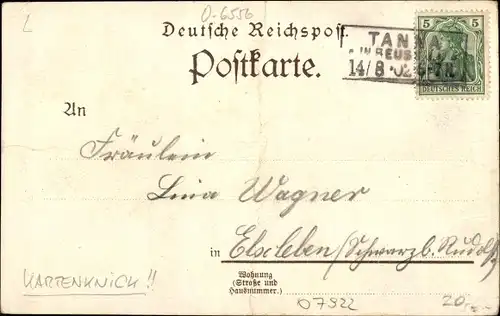 L
0-6556
Deutsche Reichspost.
Postkarte.
TANNA
IN REUSS
14/8 02
5 5
DEUTSCHES REICH
An
Fräulein
Lina Wagner
in Elxleben (Schwarzb. Rudolst
Wohnung
(Straße und
Hausnummer.)
KARTENKNICK!!
07922
20,-